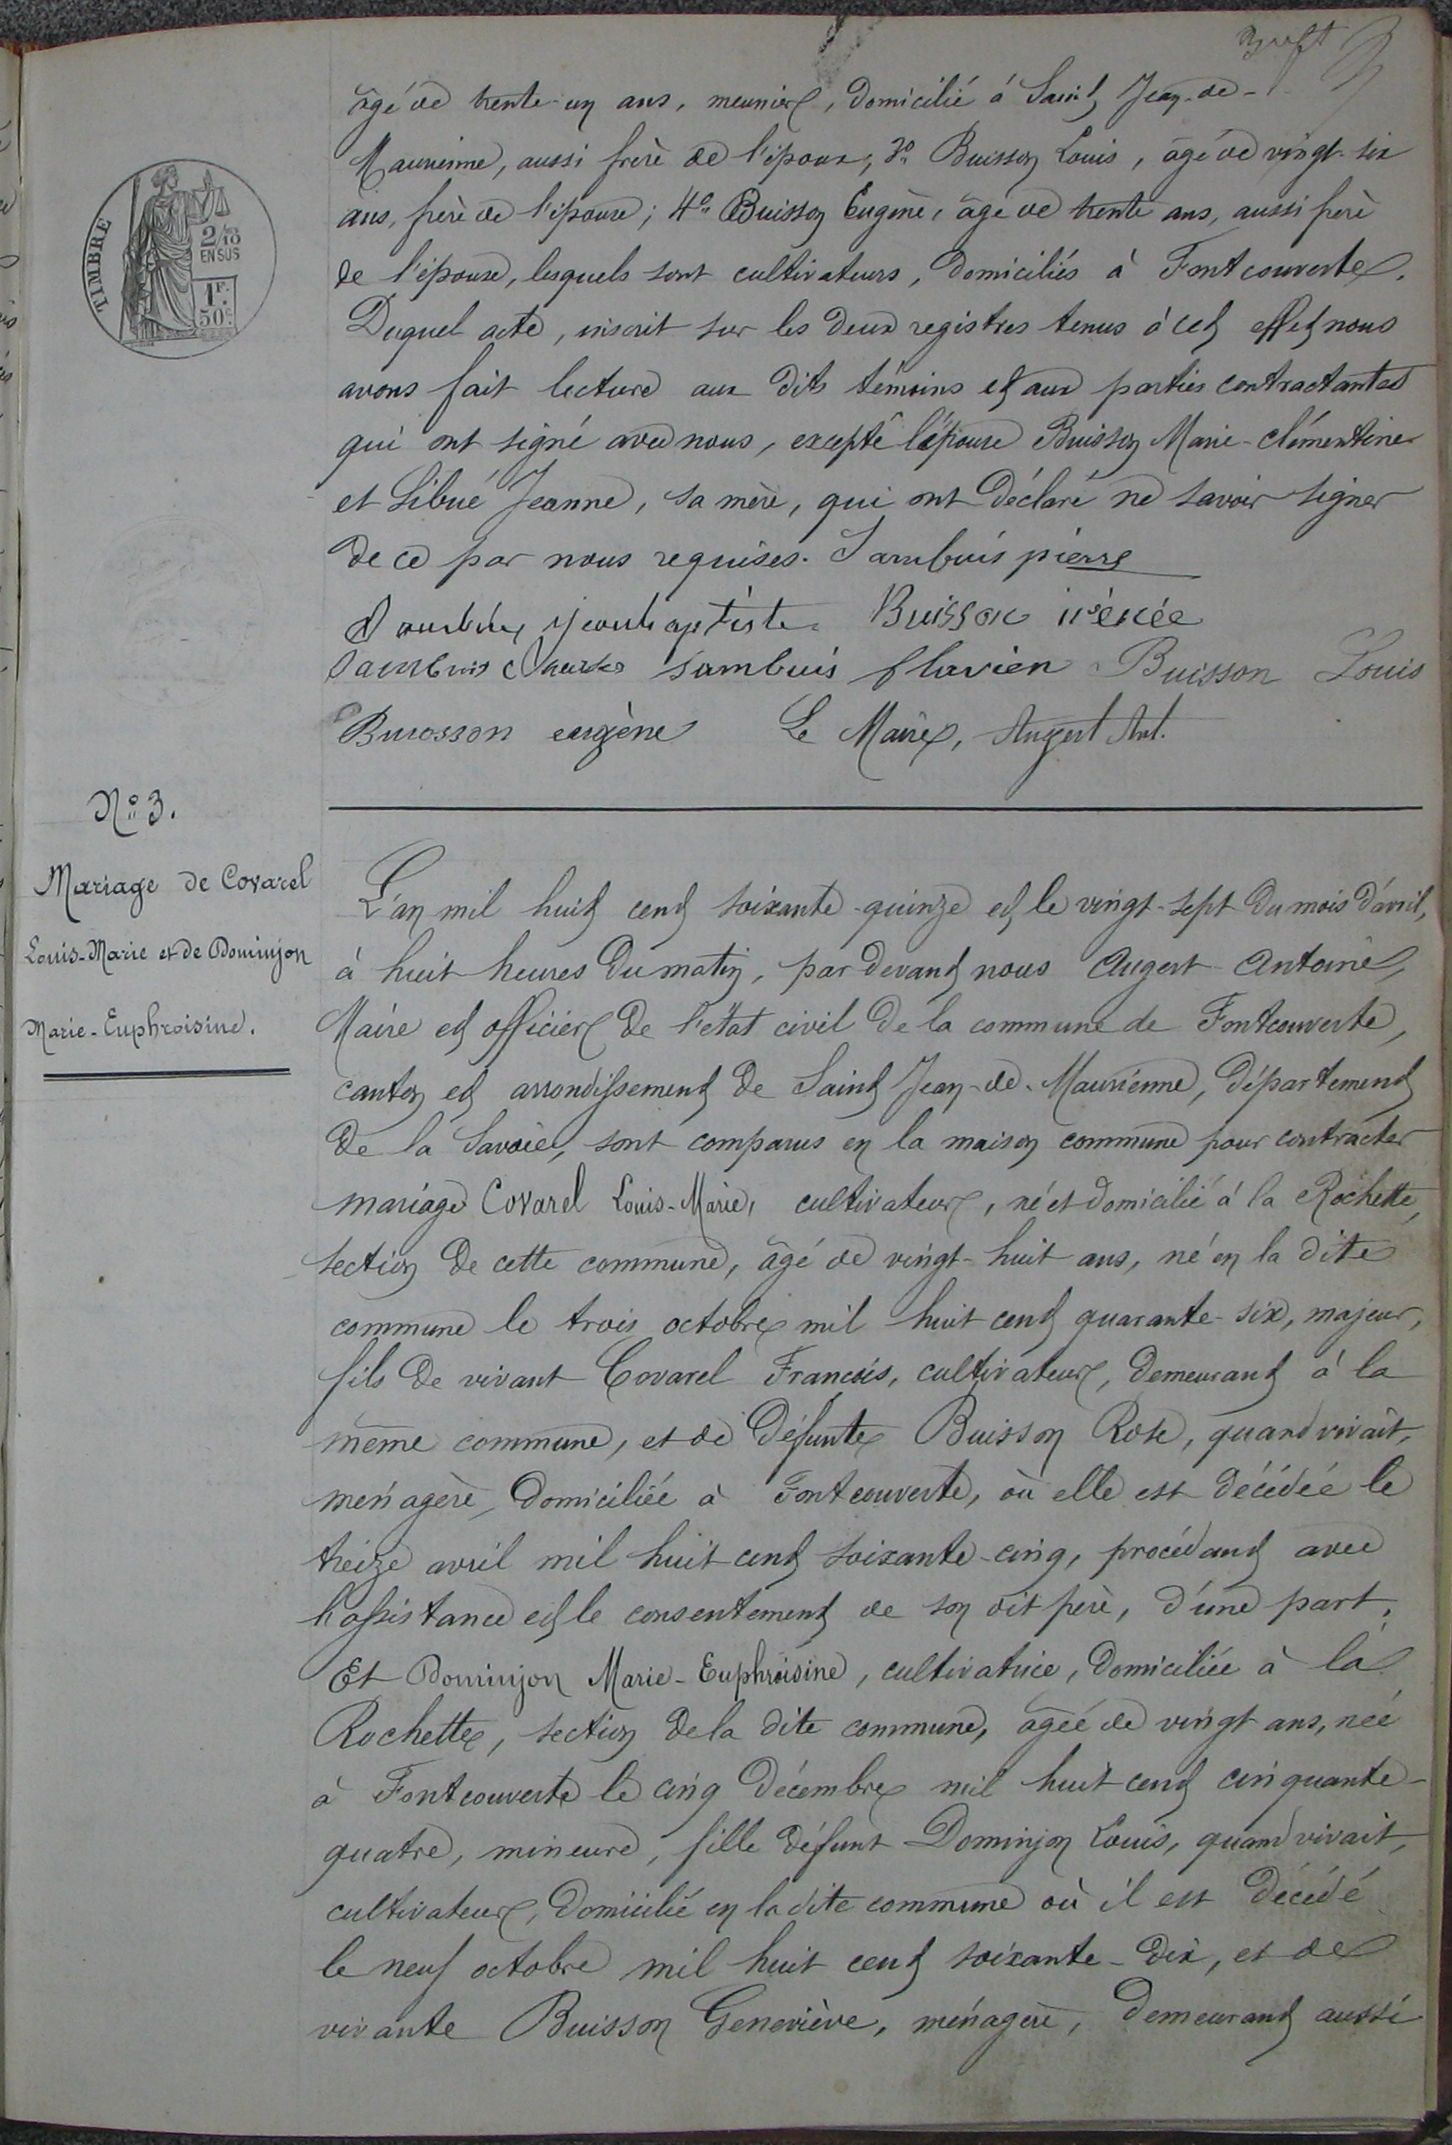 TIMBRE
2/10
EN SUS
1F.
50c
âgé de trente-un ans, meunier, domicilié à Saint Jean-de-
Maurienne, aussi frère de l'époux; 3o Buisson Louis, âgé de vingt-six
ans, frère de l'épouse; 4o Buisson Eugène, âgé de trente ans, aussi frère
de l'épouse, lesquels sont cultivateurs, domiciliés à Fontcouverte.
Duquel acte, inscrit sur les deux registres tenus à cet effet nous
avons fait lecture aux dits témoins et aux parties contractantes
qui ont signé avec nous, excepté l'épouse Buisson Marie-Clémentine
et Sibué Jeanne, sa mère, qui ont déclaré ne savoir signer
de ce par nous requises. Sambuis pierre
Sambuis jean baptiste Buisson irénée
Sambuis sambuis flavien Buisson Louis
Buisson eugène Le Maire, Augert Ant.
No 3.
Mariage de Covarel
Louis-Marie et de Dominjon
Marie-Euphroisine.
L'an mil huit cent soixante-quinze et le vingt-sept du mois d'avril,
à huit heures du matin, par devant nous Augert Antoine,
Maire et officier de l'état civil de la commune de Fontcouverte,
canton et arrondissement de Saint Jean-de-Maurienne, département
de la Savoie, sont comparus en la maison commune pour contracter
mariage Covarel Louis-Marie, cultivateur, né et domicilié à la Rochette,
section de cette commune, âgé de vingt-huit ans, né en la dite
commune le trois octobre mil huit cent quarante-six, majeur,
fils de vivant Covarel François, cultivateur, demeurant à la
même commune, et de défunte Buisson Rose, quand vivait,
ménagère, domiciliée à Fontcouverte, où elle est décédée le
treize avril mil huit cent soixante-cinq, procédant avec
l'assistance et le consentement de son dit père, d'une part,
Et Dominjon Marie-Euphroisine, cultivatrice, domiciliée à la
Rochette, section de la dite commune, âgée de vingt ans, née
à Fontcouverte le cinq décembre mil huit cent cinquante-
quatre, mineure, fille défunt Dominjon Louis, quand vivait,
cultivateur, domicilié en la dite commune où il est décédé
le neuf octobre mil huit cent soixante-dix, et de
vivante Buisson Geneviève, ménagère, demeurant aussi